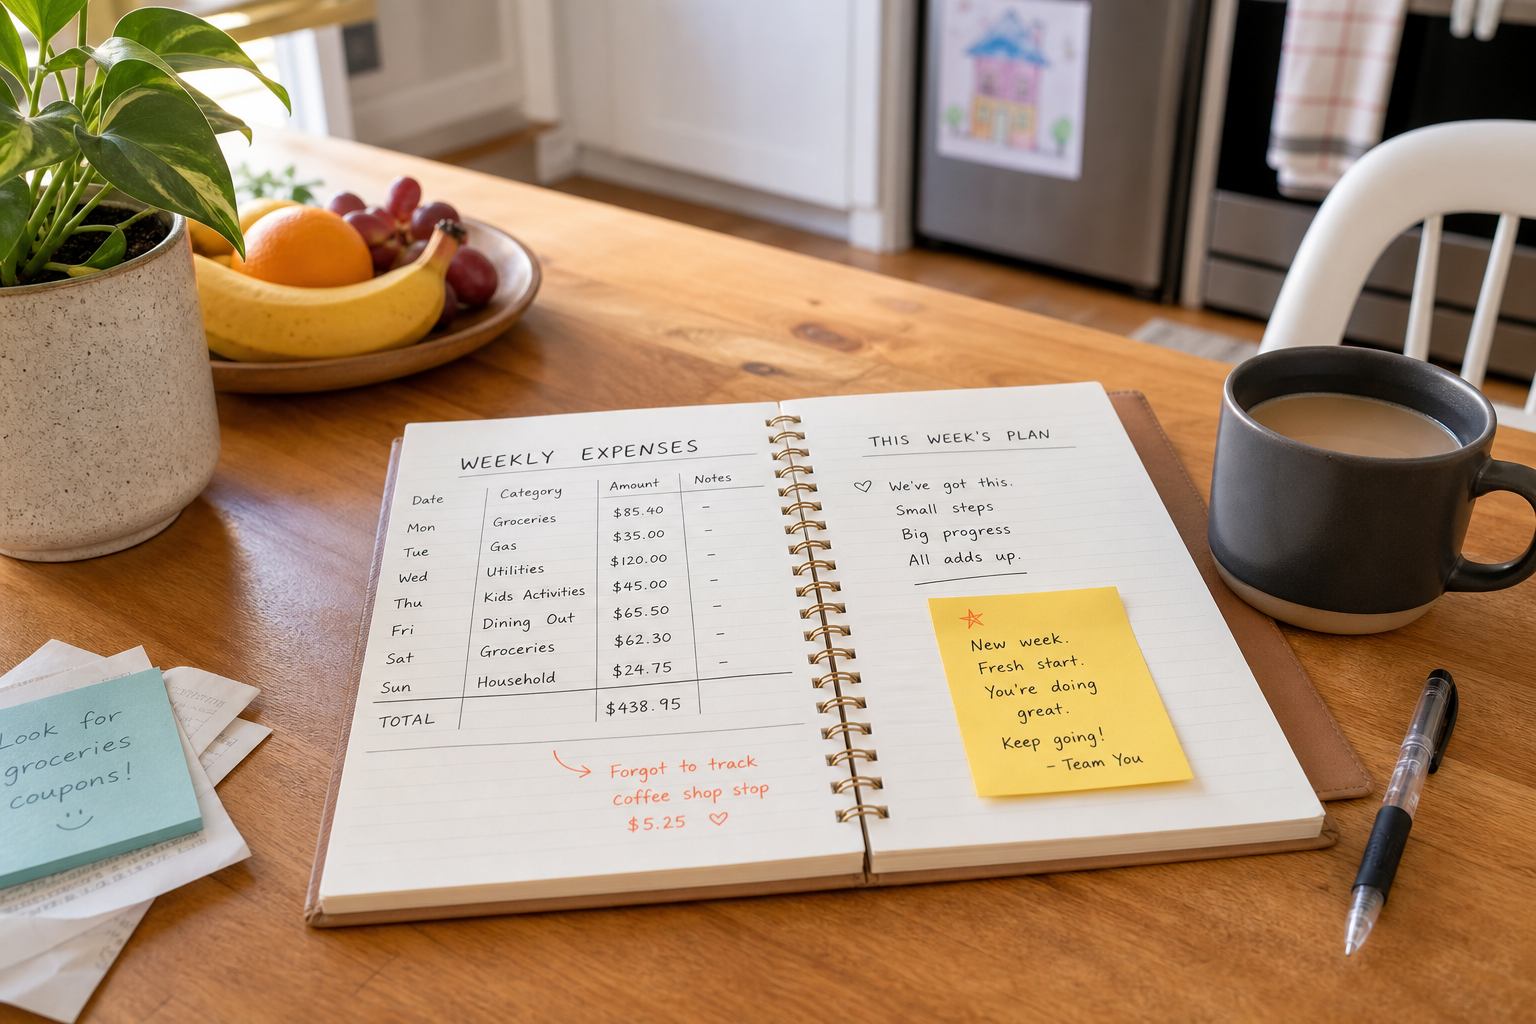 WEEKLY EXPENSES
Date Category Amount Notes
Mon Groceries $85.40 –
Tue Gas $35.00 –
Wed Utilities $120.00 –
Thu Kids Activities $45.00 –
Fri Dining Out $65.50 –
Sat Groceries $62.30 –
Sun Household $24.75 –
TOTAL $438.95
Forgot to track
coffee shop stop
$5.25 ♡
THIS WEEK'S PLAN
♡ We've got this.
Small steps
Big progress
All adds up.
New week.
Fresh start.
You're doing
great.
Keep going!
– Team You
Look for
groceries
coupons!